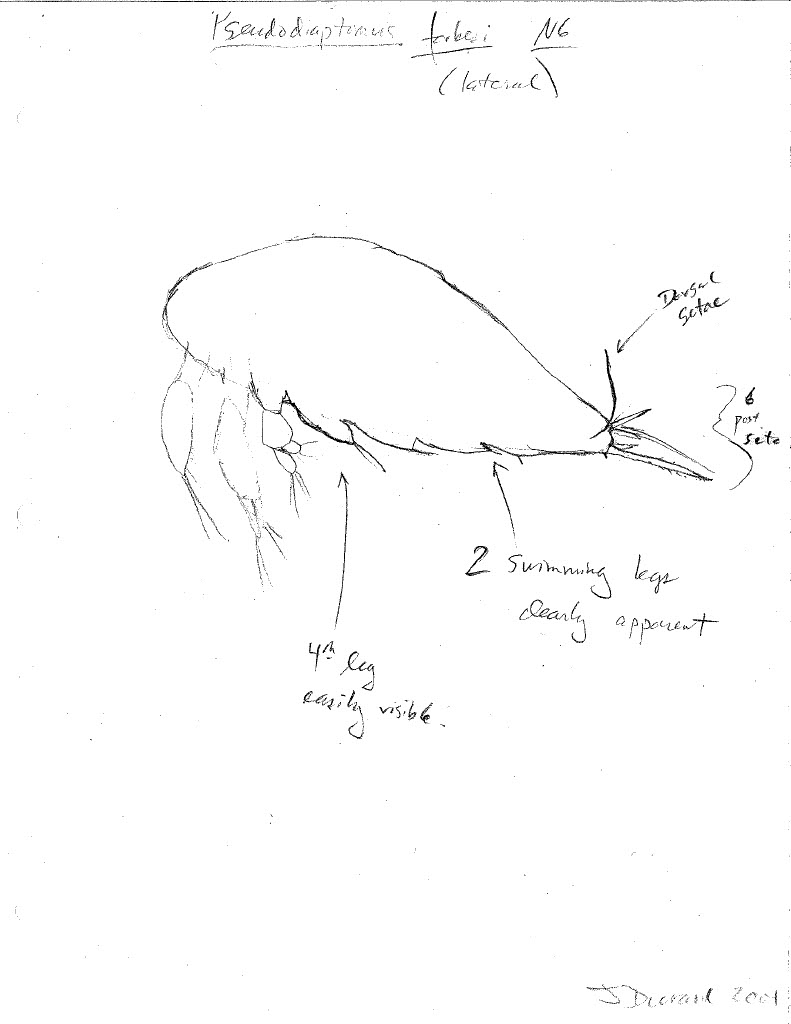 Pseudodiaptomus forbesi N6
(lateral)
Dorsal
setae
6
post
seta
2 swimming legs
clearly apparent
4th leg
easily visible.
J Durand 2001